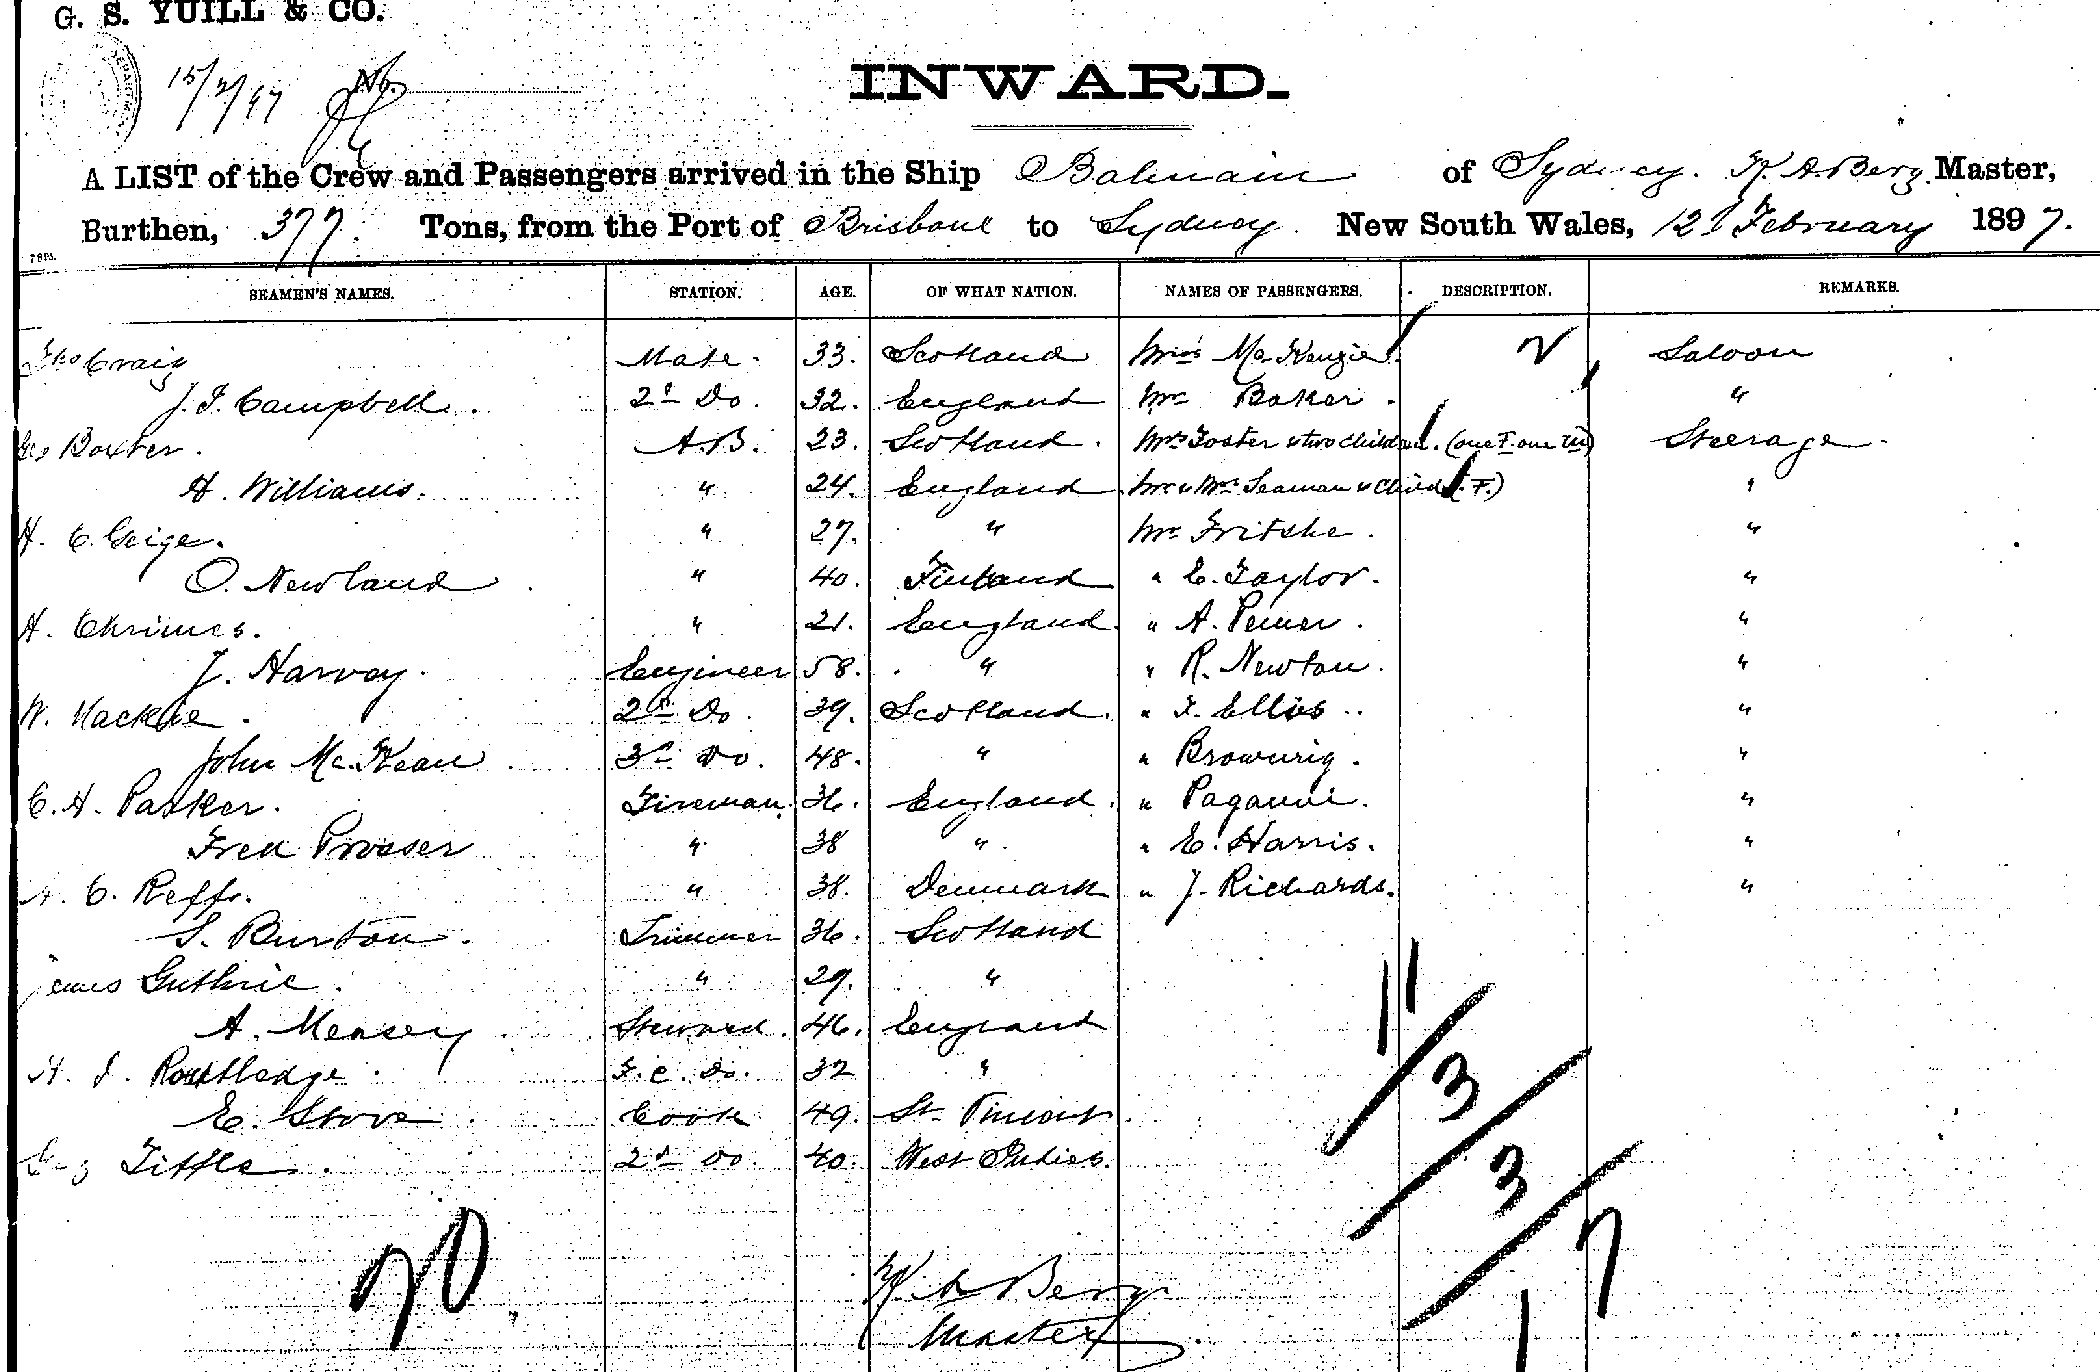 G. S. YUILL & CO.
15/2/97
INWARD.
A LIST of the Crew and Passengers arrived in the Ship Balmain of Sydney. K. A. Berg Master,
Burthen, 377. Tons, from the Port of Brisbane to Sydney. New South Wales, 12 February 1897.
SEAMEN'S NAMES. STATION. AGE. OF WHAT NATION. NAMES OF PASSENGERS. DESCRIPTION. REMARKS.
Craig Mate. 33. Scotland McKenzie Saloon
J. F. Campbell. 2d Do. 32. England Mr Baker. "
Geo Baxter. A.B. 23. Scotland. Mrs Foster & two children. (one F. one M) Steerage.
H. Williams. " 24. England Mr & Mrs Seaman & Child (F.) "
H. C. Geige. " 27. " Mr Fritshe. "
O. Newland " 40. Finland " E. Taylor. "
H. Chrimes. " 21. England. " A. "
J. Harvey. Engineer 58. " " R. Newton. "
W. Mackie. 2d Do. 39. Scotland. " F. Ellis.. "
John McKean 3d Do. 48. " " Brownrig. "
C. H. Parker. Fireman. 36. England. " Paganini. "
Fred Prosser " 38 " " E. Harris. "
C. Reffs. " 38. Denmark " J. Richards. "
S. Burton. Trimmer 36. Scotland
James Guthrie. " 29. "
A. Measey Steward. 46. England
Routledge. F.C. Do. 32 "
E. Stove Cook 49. St. Vincent.
Tittle. 2d Do. 40. West Indies.
11/3/3/17
20
K A Berg
Master